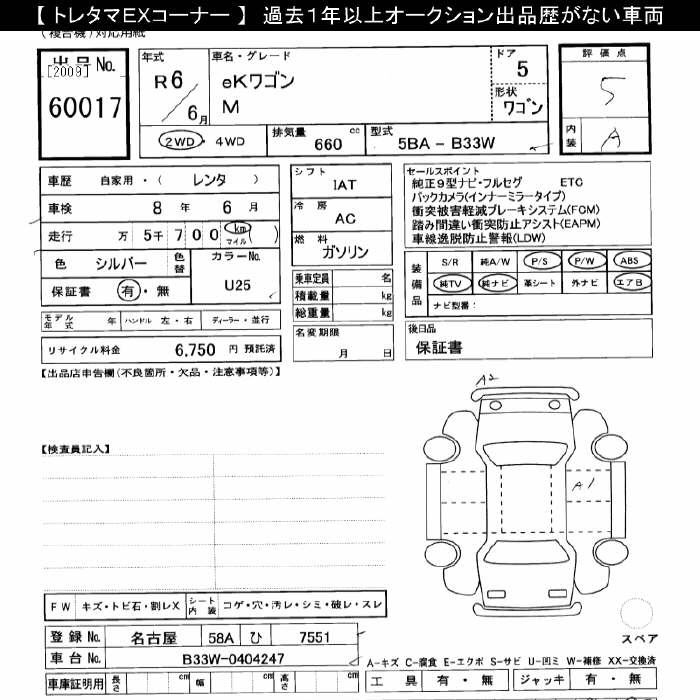 【 トレタマEXコーナー 】 過去1年以上オークション出品歴がない車両
(複合機)対応用紙
出品 No.
[2009]
60017
年式
R 6
6月
車名・グレード
eKワゴン
M
ドア
5
形状
ワゴン
評価点
5
内装
A
2WD ・ 4WD
排気量 660 cc
型式 5BA - B33W
車歴 自家用・( レンタ )
車検 8 年 6 月
走行 万 5千 7 0 0 km マイル )
色 シルバー
色替
カラーNo.
U25
保証書 有・無
シフト
IAT
冷房
AC
燃料
ガソリン
乗車定員 名
積載量 kg
総重量 kg
セールスポイント
純正9型ナビ・フルセグ ETC
バックカメラ(インナーミラータイプ)
衝突被害軽減ブレーキシステム(FCM)
踏み間違い衝突防止アシスト(EAPM)
車線逸脱防止警報(LDW)
装備品
S/R 純A/W P/S P/W ABS
純TV 純ナビ 革シート 外ナビ エアB
ナビ型番:
モデル年式 年 ハンドル 左・右 ディーラー・並行
名変期限
月 日
後日品
保証書
リサイクル料金 6,750 円 預託済
【出品店申告欄(不良箇所・欠品・注意事項等)】
A2
【検査員記入】
A1
FW キズ・トビ石・割レX
シート内装 コゲ・穴・汚レ・シミ・破レ・スレ
スペア
登録 No. 名古屋 58A ひ 7551
車台 No. B33W-0404247
A-キズ C-腐食 E-エクボ S-サビ U-凹ミ W-補修 XX-交換済
車庫証明用 長さ cm 幅 cm 高さ cm
工具 有・無 ジャッキ 有・無